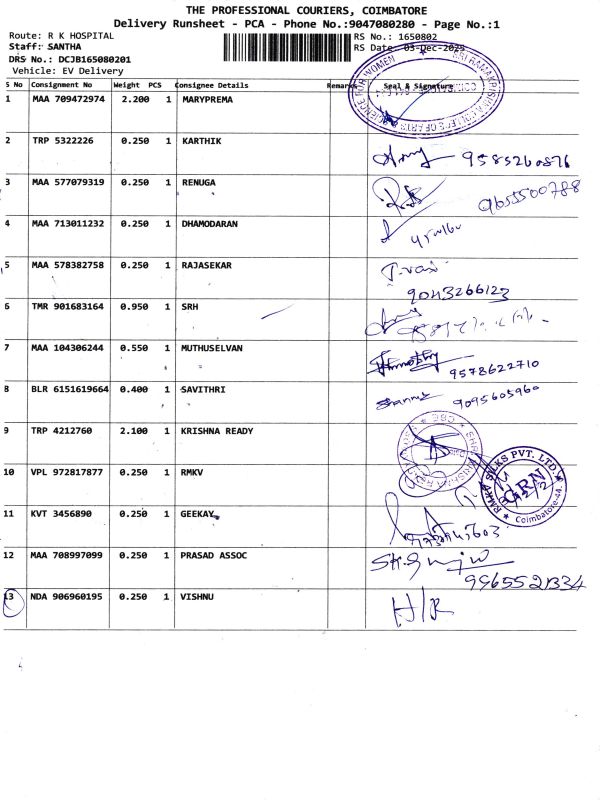 THE PROFESSIONAL COURIERS, COIMBATORE
Delivery Runsheet - PCA - Phone No.:9047080280 - Page No.:1
Route: R K HOSPITAL RS No.: 1650802
Staff: SANTHA RS Date: 03-Dec-2025
DRS No.: DCJB165080201
Vehicle: EV Delivery
S No Consignment No Weight PCS Consignee Details Remarks Seal & Signature
1 MAA 709472974 2.200 1 MARYPREMA
2 TRP 5322226 0.250 1 KARTHIK 9585260876
3 MAA 577079319 0.250 1 RENUGA 9655500788
4 MAA 713011232 0.250 1 DHAMODARAN
5 MAA 578382758 0.250 1 RAJASEKAR
9043266123
6 TMR 901683164 0.950 1 SRH
7 MAA 104306244 0.550 1 MUTHUSELVAN 9578622710
8 BLR 6151619664 0.400 1 SAVITHRI 9095605960
9 TRP 4212760 2.100 1 KRISHNA READY
10 VPL 972817877 0.250 1 RMKV RMKV SILKS PVT. LTD. GRN Coimbatore-44.
11 KVT 3456890 0.250 1 GEEKAY
12 MAA 708997099 0.250 1 PRASAD ASSOC
9965521334
13 NDA 906960195 0.250 1 VISHNU H/R